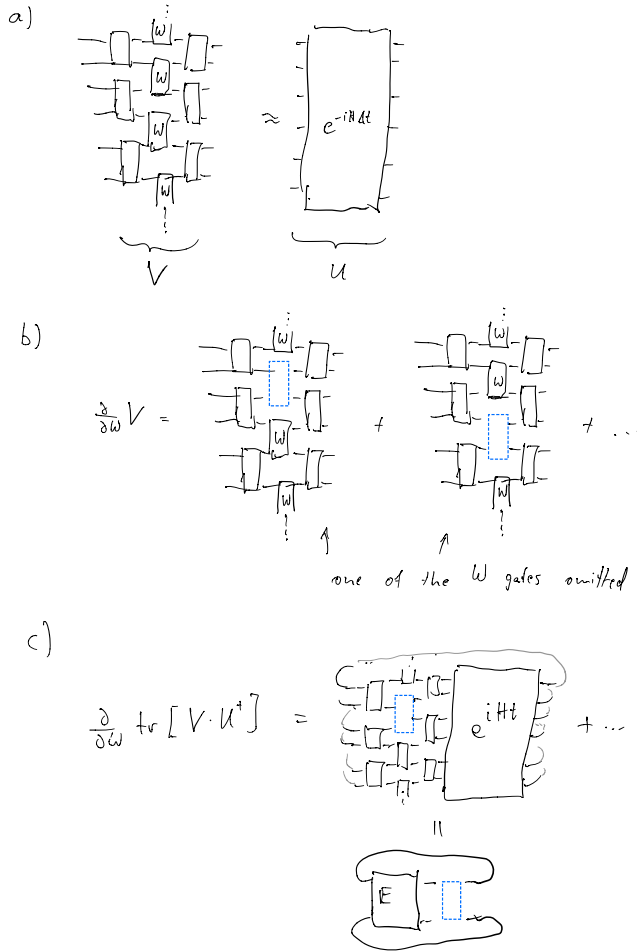 a)
W
W
W
W
≈
e^{-iHΔt}
V
U
b)
∂/∂W V =
W
W
W
+
W
W
W
+ ...
one of the W gates omitted
c)
∂/∂W tr [ V · U† ] =
e^{iHt}
+ ...
=
E